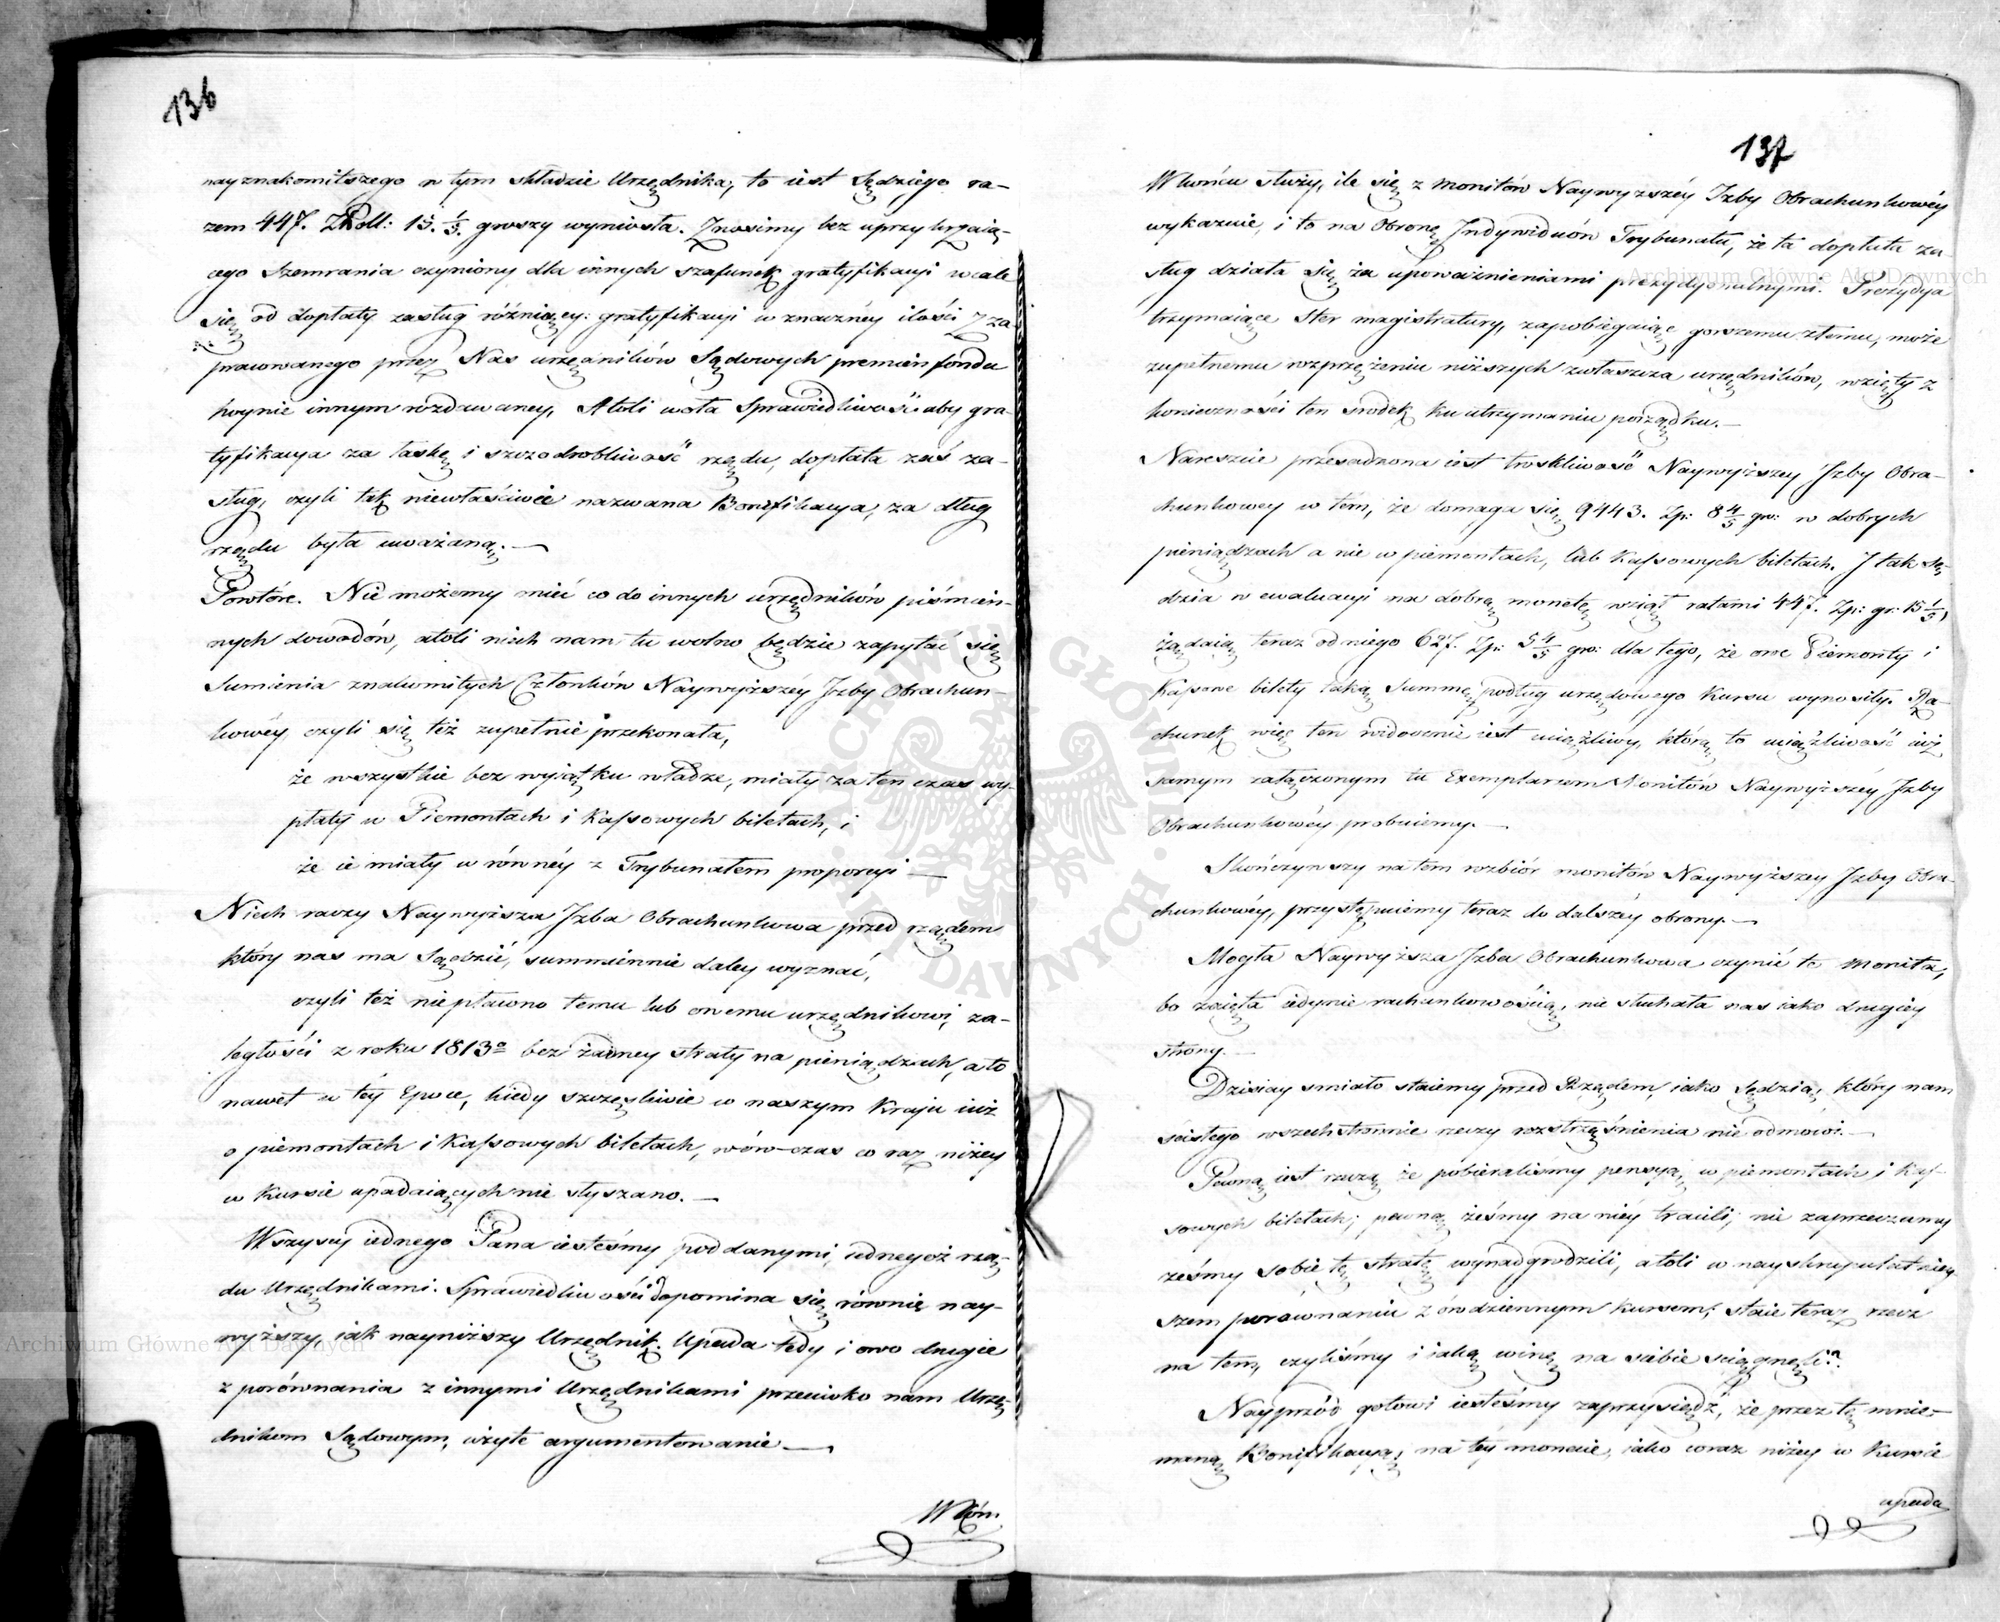 136
nayznakomitszego w tym składzie Urzędnika, to iest Sędziego ra-
zem 447. ZPoll: 15. 1/5. groszy wyniosła. Znosimy bez uprzykrzaią-
cego Szemrania czyniony dla innych szafunek gratyfikacyi wcale
się od dopłaty zasług różniącey: gratyfikacyi w znaczney ilości z za
pracowanego przez Nas urzędników Sądowych premien fondu
hoynie innym rozdawaney, Atoli woła Sprawiedliwość aby gra-
tyfikacya za łaskę i szczodrobliwość rządu, dopłata zaś za-
sług, czyli tak niewłaściwie nazwana Bonifikacya, za dług
rządu była uważaną. —
Powtóre. Nie możemy mieć co do innych urzędników piśmien-
nych dowodów, atoli niech nam tu wolno będzie zapytać się
Sumienia znakomitych Członków Naywyższéy Izby Obrachun-
kowéy czyli się też zupełnie przekonała,
że wszystkie bez wyiątku władze, miały za ten czas wy-
płaty w Piemontach i Kassowych biletach, i
że ie miały w równéy z Trybunałem proporcyi —
Niech raczy Naywyższa Izba Obrachunkowa przed rządem
który nas ma Sądzić, summiennie daley wyznać,
czyli też nie płacono temu lub onemu urzędnikowi, za-
ległości z roku 1813º bez żadney straty na pieniądzach, a to
nawet w téy Epoce, kiedy szczęśliwie w naszym Kraju iuż
o piemontach i Kassowych biletach, wówczas co raz niżey
w Kursie upadaiących nie słyszano. —
Wszyscy iednego Pana iesteśmy poddanymi, iednegoż rzą-
du Urzędnikami. Sprawiedliwości dopomina się równie nay-
wyższy, iak nayniższy Urzędnik. Upada tedy i owo drugie
z porównania z innymi Urzędnikami przeciwko nam Urzę-
dnikom Sądowym, użyte argumentowanie —
W Koń.
137
W końcu służy, ile się z Monitów Naywyższéy Izby Obrachunkowéy
wykazuie, i to na Obronę Indywiduów Trybunału, że ta dopłata za-
sług działa się za upoważnieniami prezydyonalnymi. Prezydya
trzymaiące Ster magistratury, zapobiegaiąc gorszemu złemu, może
zupełnemu rozprzężeniu niższych zwłaszcza urzędników, wzięły z
konieczności ten środek ku utrzymaniu porządku. —
Nareszcie przesadzona iest troskliwość Naywyższey Izby Obra-
chunkowey w tém, że domaga się 9443. Zp: 8 4/5 gr: w dobrych
pieniądzach a nie w piemontach, lub Kassowych biletach. I tak Sę-
dzia w ewaluacyi na dobrą monetę wziął ratami 447. Zp: gr: 15 1/5,
żądaią teraz od niego 627. Zp: 5 4/5 gr: dla tego, że one Piemonty i
Kassowe bilety taką Summę podług urzędowego Kursu wynosiły. Ra-
chunek więc ten widocznie iest uciążliwy, którą to uciążliwość iuż
samym załączonym tu Exemplarzem Monitów Naywyższéy Izby
Obrachunkowéy probuiemy. —
Skończywszy na tem rozbiór monitów Naywyższey Izby Obra-
chunkowéy, przystępuiemy teraz do dalszéy obrony. —
Mogła Naywyższa Izba Obrachunkowa czynić te Monita,
bo zaięta iedynie rachunkowością, nie słuchała nas iako drugiey
strony. —
Dzisiay śmiało staiemy przed Rządem, iako Sędzią, który nam
ścisłego wszechstronnie rzeczy rozstrząśnienia nie odmówi. —
Pewną iest rzeczą że pobieraliśmy pensyą w piemontach i Kas-
sowych biletach; pewną żeśmy na niéy tracili; nie zaprzeczamy
żeśmy sobie tę stratę wynadgrodzili, atoli w nayskrupulatniey-
szem porównaniu z ówdziennym Kursem; staie teraz rzecz
na tem, czyliśmy i iaką winę na siebie ściągnęli?
Nayprzód gotowi iesteśmy zaprzysiądz, że przez tę mnie-
maną Bonifikacyą, na téy monecie, iako coraz niżey w Kursie
upada
Archiwum Główne Akt Dawnych
Archiwum Główne Akt Dawnych
ARCHIWUM GŁÓWNE AKT DAWNYCH